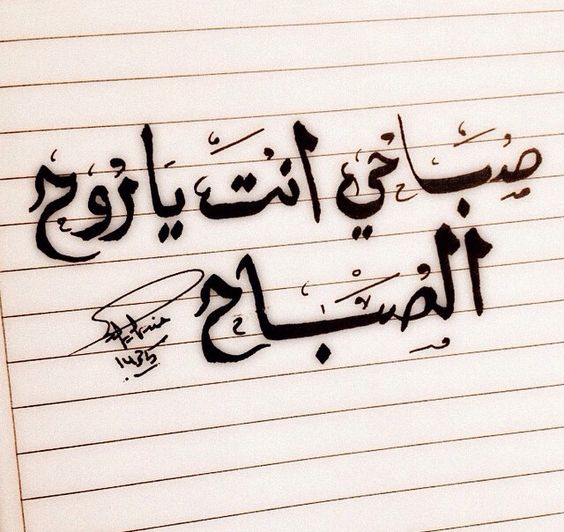 صباحي انت يا روح
الصباح
١٤٣٥